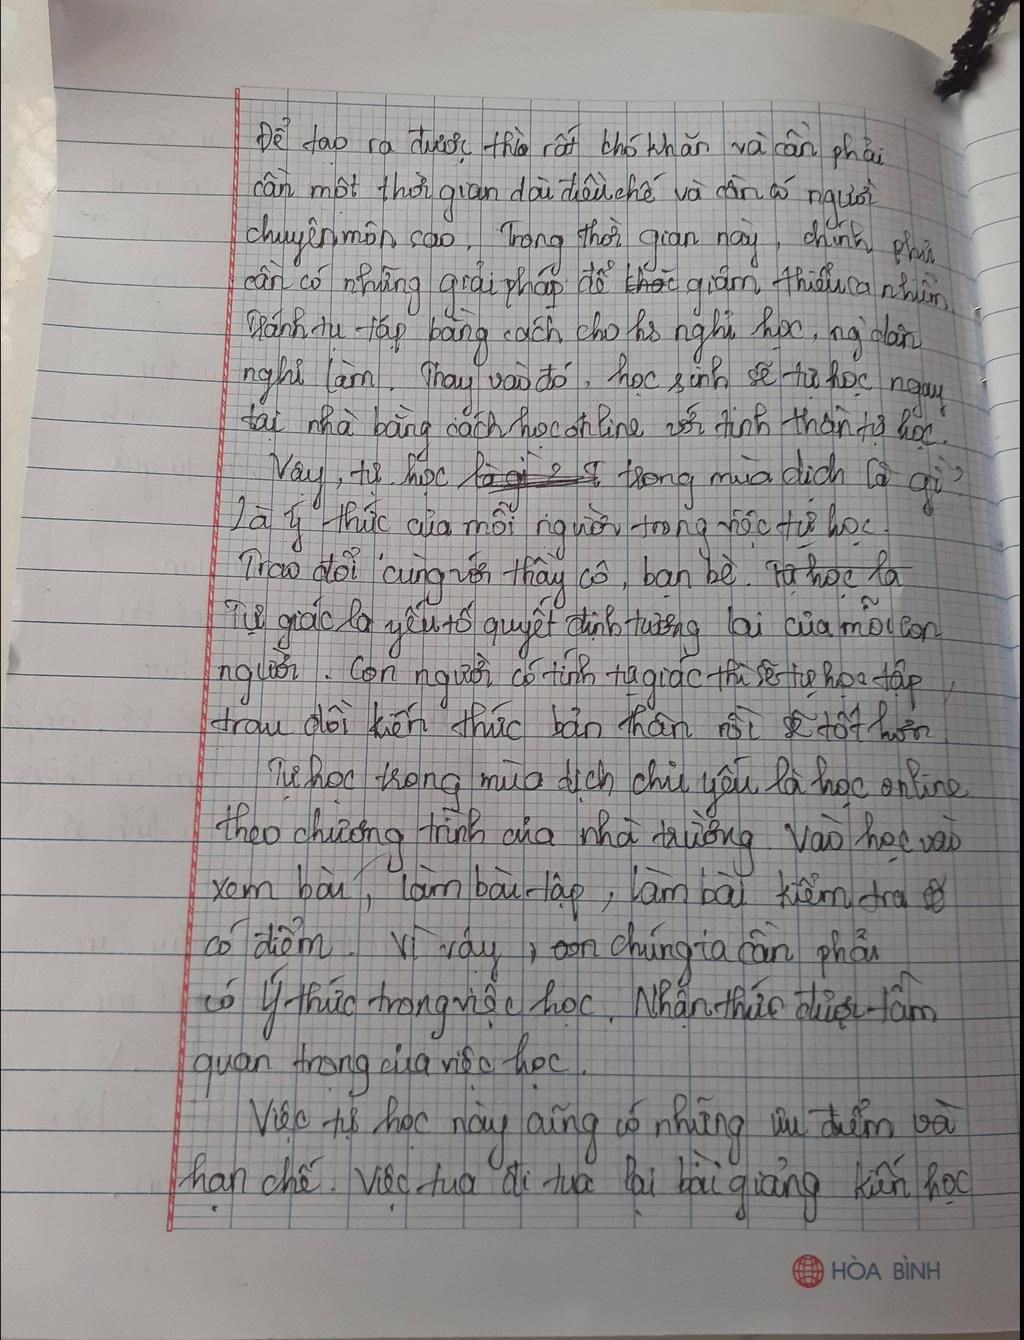 Để tạo ra được thì rất khó khăn và cần phải
cần một thời gian dài điều chế và cần có người
chuyên môn cao. Trong thời gian này, chính phủ
cần có những giải pháp để giảm thiểu ca nhiễm
tránh tụ tập bằng cách cho hs nghỉ học, ng dân
nghỉ làm. Thay vào đó, học sinh sẽ tự học ngay
tại nhà bằng cách học online với tinh thần tự học.
Vậy, tự học là gì trong mùa dịch là gì?
Là ý thức của mỗi người trong việc tự học.
Trao đổi cùng với thầy cô, bạn bè. Tự học là
Tự giác là yếu tố quyết định tương lai của mỗi con
người. Con người có tính tự giác thì sẽ tự học tập,
trau dồi kiến thức bản thân rồi sẽ tốt hơn
Tự học trong mùa dịch chủ yếu là học online
theo chương trình của nhà trường. Vào học vào
xem bài, làm bài tập, làm bài kiểm tra
có điểm. Vì vậy, con chúng ta cần phải
có ý thức trong việc học. Nhận thức được tầm
quan trọng của việc học.
Việc tự học này cũng có những ưu điểm và
hạn chế. Việc tua đi tua lại bài giảng kiến học
HÒA BÌNH